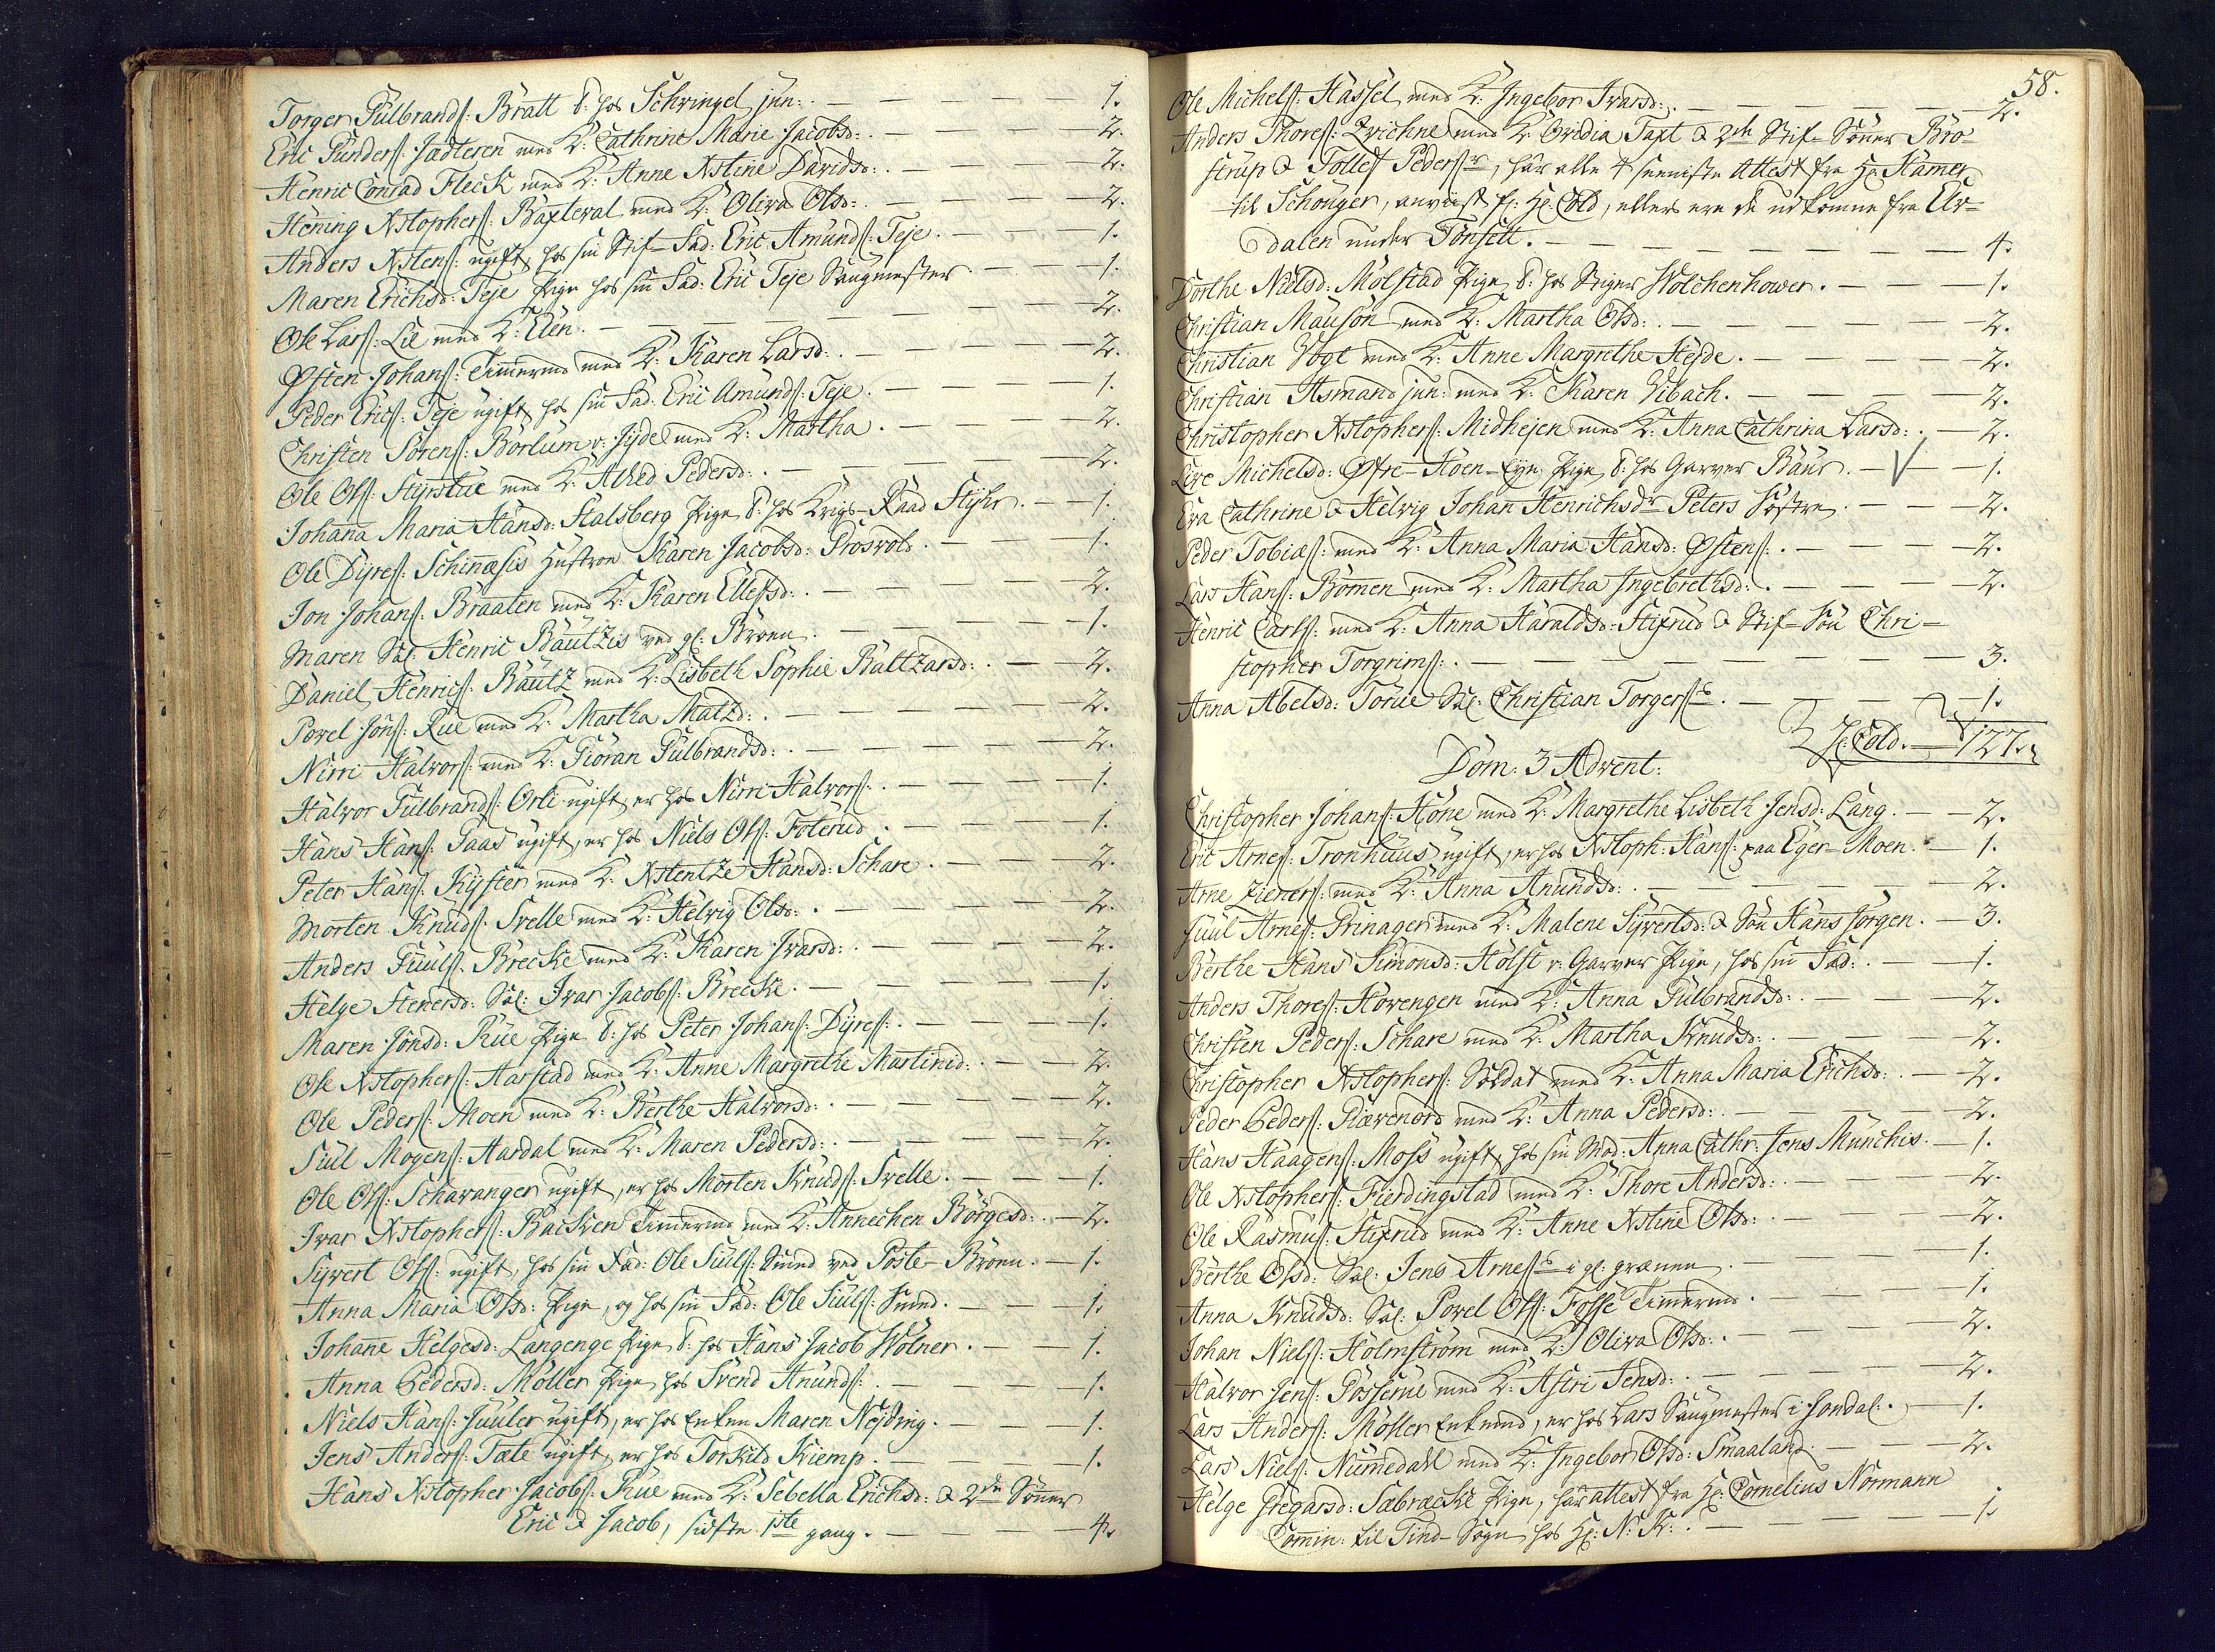 Torger Gülbrands: Bratt t: hos Schwingel jün:. — — — 1.
Eric Gunders: Jædteren med K: Cathrine Marie Jacobsd:. — — 2.
Henric Conrad Fleck med K: Anne Xstine Davidsd:. — — 2.
Hening Xstophers: Baxteval med K: Oliva Olsd:. — — 2.
Anders Xstens: ugift, hos sin Stif-Fad: Eric Amunds: Teje. — — 1.
Maren Erichsd: Teje Pige hos sin Fad: Eric Teje Saugmester. — 1.
Ole Lars: Lie med K: Elen. — — — 2.
Østen Johans: Timermd med K: Karen Larsd:. — — 2.
Peder Erics: Teje ugift, hos sin Fad: Eric Amunds: Teje. — — 1.
Christen Sörens: Börlum v: Jijde med K: Martha. — — 2.
Ole Ols: Styrstue med K: Alhed Pedersd:. — — 2.
Johanna Maria Hansd: Halsberg Pige t: hos Krigs-Raad Styhr. — 1.
Ole Dyres: Schinæsis Hustroe Karen Jacobsd: Grosvold. — — 1.
Jon Johans: Braaten med K: Karen Ellefsd:. — — 2.
Maren Sal: Henric Bautzis ved gl: Broen. — — 1.
Daniel Henrics: Bautz med K: Lisbeth Sophie Baltzarsd:. — 2.
Povel Jöns: Rue med K: Martha Matzd:. — — 2.
Nirri Halvors: med K: Giöran Gulbrandsd:. — — 2.
Halvor Gulbrands: Orli ugift, er hos Nirri Halvors:. — — 1.
Hans Hans: Gaas ugift, er hos Niels Ols: Foterud. — — 1.
Peter Hans: Kyster med K: Xstentze Hansd: Schare. — — 2.
Morten Knuds: Svelle med K: Helvig Olsd:. — — 2.
Anders Juuls: Brecke med K: Karen Ivarsd:. — — 2.
Helge Stenersd: Sal: Ivar Jacobs: Brecke. — — 1.
Maren Jonsd: Rue Pige t: hos Peter Johans: Dyres:. — — 1.
Ole Xstophers: Aarstad med K: Anne Margrethe Martinid:. — 2.
Ole Peders: Moen med K: Berthe Halvorsd:. — — 2.
Siul Mogens: Aardal med K: Maren Pedersd:. — — 2.
Ole Ols: Schavanger ugift, er hos Morten Knuds: Svelle. — — 1.
Ivar Xstophers: Backen Timermd med K: Annechen Börgesd:. — 2.
Sywert Ols: ugift, hos sin Fad: Ole Siuls: Smed ved Poste-Broen. — 1.
Anna Maria Olsd: Pige, og hos sin Fad: Ole Siuls: Smed. — — 1.
Johanne Helgesd: Langenge Pige t: hos Hans Jacob Wölner. — — 1.
Anna Pedersd: Möller Pige, hos Svend Anunds:. — — 1.
Niels Hans: Juuler ugift, er hos Enken Maren Nejding. — — 1.
Jens Anders: Tæte ugift, er hos Torkild Kiemp. — — 1.
Hans Xstopher Jacobs: Rue med K: Sebella Erichsd: & 2de Sönner
Eric & Jacob, sidste 1ste gang. — — 4.
58.
Ole Michels: Hassel med K: Ingebor Ivarsd:. — — 2.
Anders Thores: med K: Ovidia Taxt & 2de Stif-Sönner Bro-
strup & Tollef Peders:r, har alle 4 seeniste Attest fra Hr Hamer
til Schonger, anviist f: Hr: Cold, ellers ere de udkomne fra El-
dalen under Tönsett. — — — 4.
Dorthe Nielsd: Mölstad Pige t: hos Stiger Wolchenhower. — — 1.
Christian Mauson med K: Martha Olsd:. — — 2.
Christian Vogt med K: Anne Margrethe Hejde. — — 2.
Christian Asmand jun: med K: Karen Vibach. — — 2.
Christopher Xstophers: Midhejen med K: Anna Cathrina Larsd:. — 2.
Live Michelsd: Øfre-Hoen-Eye Pige t: hos Garver Baur. — √ — 1.
Eva Cathrine & Helvig Johan Henrichsdr Peters Söstre. — — 2.
Peder Tobias: med K: Anna Maria Hansd: Østens:. — — 2.
Lars Hans: Bömen med K: Martha Ingebrethsd:. — — 2.
Henric Carls: med K: Anna Haraldsd: Stixrud & Stif-Sön Chri-
stopher Torgrims:. — — — 3.
Anna Abelsd: Torue Sal: Christian Torgers:. — — 1.
H: Cold. — 127.
Dom: 3 Advent:
Christopher Johans: Höne med K: Margrethe Lisbeth Jensd: Lang. — 2.
Eric Arnes: Tronhuus ugift, er hos Xstoph: Hans: paa Eger-Moen. — 1.
Arne Zieners: med K: Anna Anundsd:. — — 2.
Juul Arnes: Grinager med K: Malene Sywertsd: & Sön Hans Jörgen. — 3.
Berthe Hans Simonsd: Holst v: Garver Pige, hos sin Fad:. — — 1.
Anders Thores: Hovengen med K: Anna Gulbrandsd:. — — 2.
Christen Peders: Schare med K: Martha Knudsd:. — — 2.
Christopher Xstophers: Soldat med K: Anna Maria Erichsd:. — 2.
Peder Peders: Giævenord med K: Anna Pedersd:. — — 2.
Hans Haagens: Moss ugift, hos sin Mod: Anna Cathr: Jens Munchis. — 1.
Ole Xstophers: Fierdingstad med K: Thore Andersd:. — — 2.
Ole Rasmus: Stixrud med K: Anne Xstine Olsd:. — — 2.
Berthe Olsd: Sal: Jens Arnes: i gl: grænnen. — — 1.
Anna Knudsd: Sal: Povel Ols: Fosse Timermd. — — 1.
Johan Niels: Holmström med K: Oliva Olsd:. — — 2.
Halvor Jens: Gosserue med K: Astri Jensd:. — — 2.
Lars Anders: Möller Enkemd, er hos Lars Saugmester i Jondal:. — 1.
Lars Niels: Numedahl med K: Ingebor Olsd: Smaaland. — — 2.
Helge Gregarsd: Sæbrecke Pige, har attest fra Hr: Cornelius Normann
Comin: til Tind-Sogn hos Hr: N: K:. — — 1.